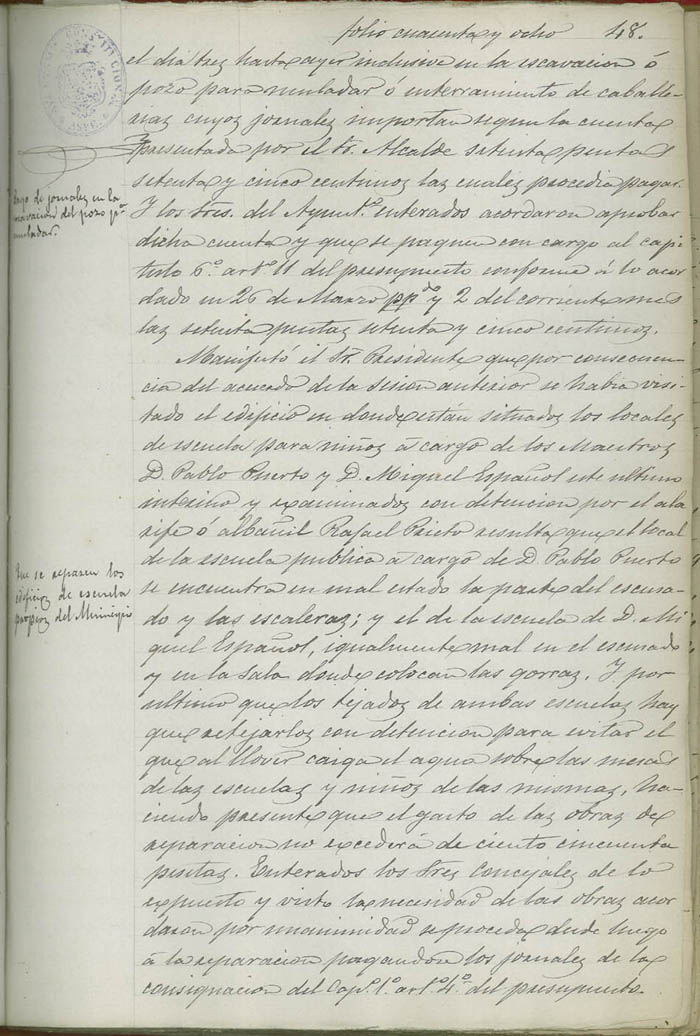 folio cuarenta y ocho 48.
el dia trez hasta ayer inclusive en la escavacion ó
pozo para muladar ó enterramiento de caballe-
riaz cuyoz jornalez importan segun la cuenta
presentada por el Sr. Alcalde setenta pesetas
setenta y cinco centimoz laz cualez procedia pagar.
Y los Sres. del Ayuntº. enterados acordaron aprobar
dicha cuenta y que se paguen con cargo al capi-
tulo 6º. artº. 11 del presupuesto conforme á lo acor-
dado en 26 de Marzo ppdº y 2 del corriente mes
laz setenta pesetas setenta y cinco centimoz.
Manifestó el Sr. Presidente que por consecuen-
cia del acuerdo de la sesion anterior se habia visi-
tado el edificio en donde están situadoz los localez
de escuela para niñoz á cargo de los Maestroz
D. Pablo Puerto y D. Miguel Español este ultimo
interino y examinadoz con detencion por el ala-
rife ó albañil Rafael Prieto resulta que el local
de la escuela publica á cargo de D. Pablo Puerto
se encuentra en mal estado la parte del escusa-
do y las escaleraz; y el de la escuela de D. Mi-
guel Español, igualmente mal en el escusado
y en la sala donde colocan las gorraz. Y por
ultimo que los tejadoz de ambas escuelaz hay
que retejarloz con detencion para evitar el
que al llover caiga el agua sobre las mesaz
de laz escuelaz y niñoz de las mismaz, ha-
ciendo presente que el gasto de laz obraz de
reparacion no excederá de ciento cincuenta
pesetaz. Enterados los Srez Concejalez de lo
expuesto y visto la necesidad de las obraz acor-
daron por unanimidad se proceda desde luego
á la reparacion pagandose los jornalez de la
consignacion del Capº. 1º. artº. 4º. del presupuesto.
Pago de jornalez en la
escavacion del pozo pª
muladar.
Que se reparen los
edificioz de escuela
propioz del Municipio